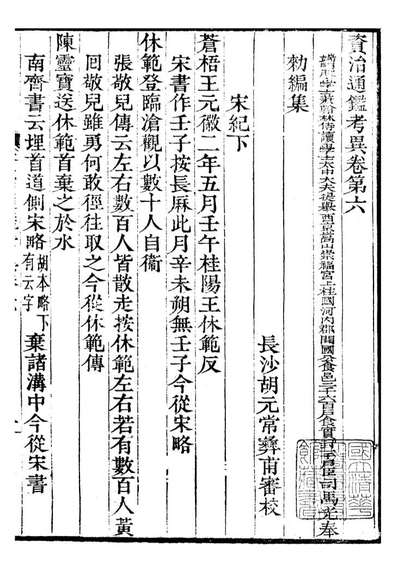 資治通鑑考異卷第六
端明殿學士兼翰林侍讀學士太中大夫提舉西京嵩山崇福宮上柱國河內郡開國公食邑二千六百戶食實封壹阡戶臣司馬光奉
勑編集
長沙胡元常彝甫審校
宋紀下
蒼梧王元徽二年五月壬午桂陽王休範反
宋書作壬子按長厤此月辛未朔無壬子今從宋略
休範登臨滄觀以數十人自衞
張敬兒傳云左右數百人皆散走按休範左右若有數百人黃
回敬兒雖勇何敢徑往取之今從休範傳
陳靈寶送休範首棄之於水
南齊書云埋首道側宋略胡本略下有云字棄諸溝中今從宋書